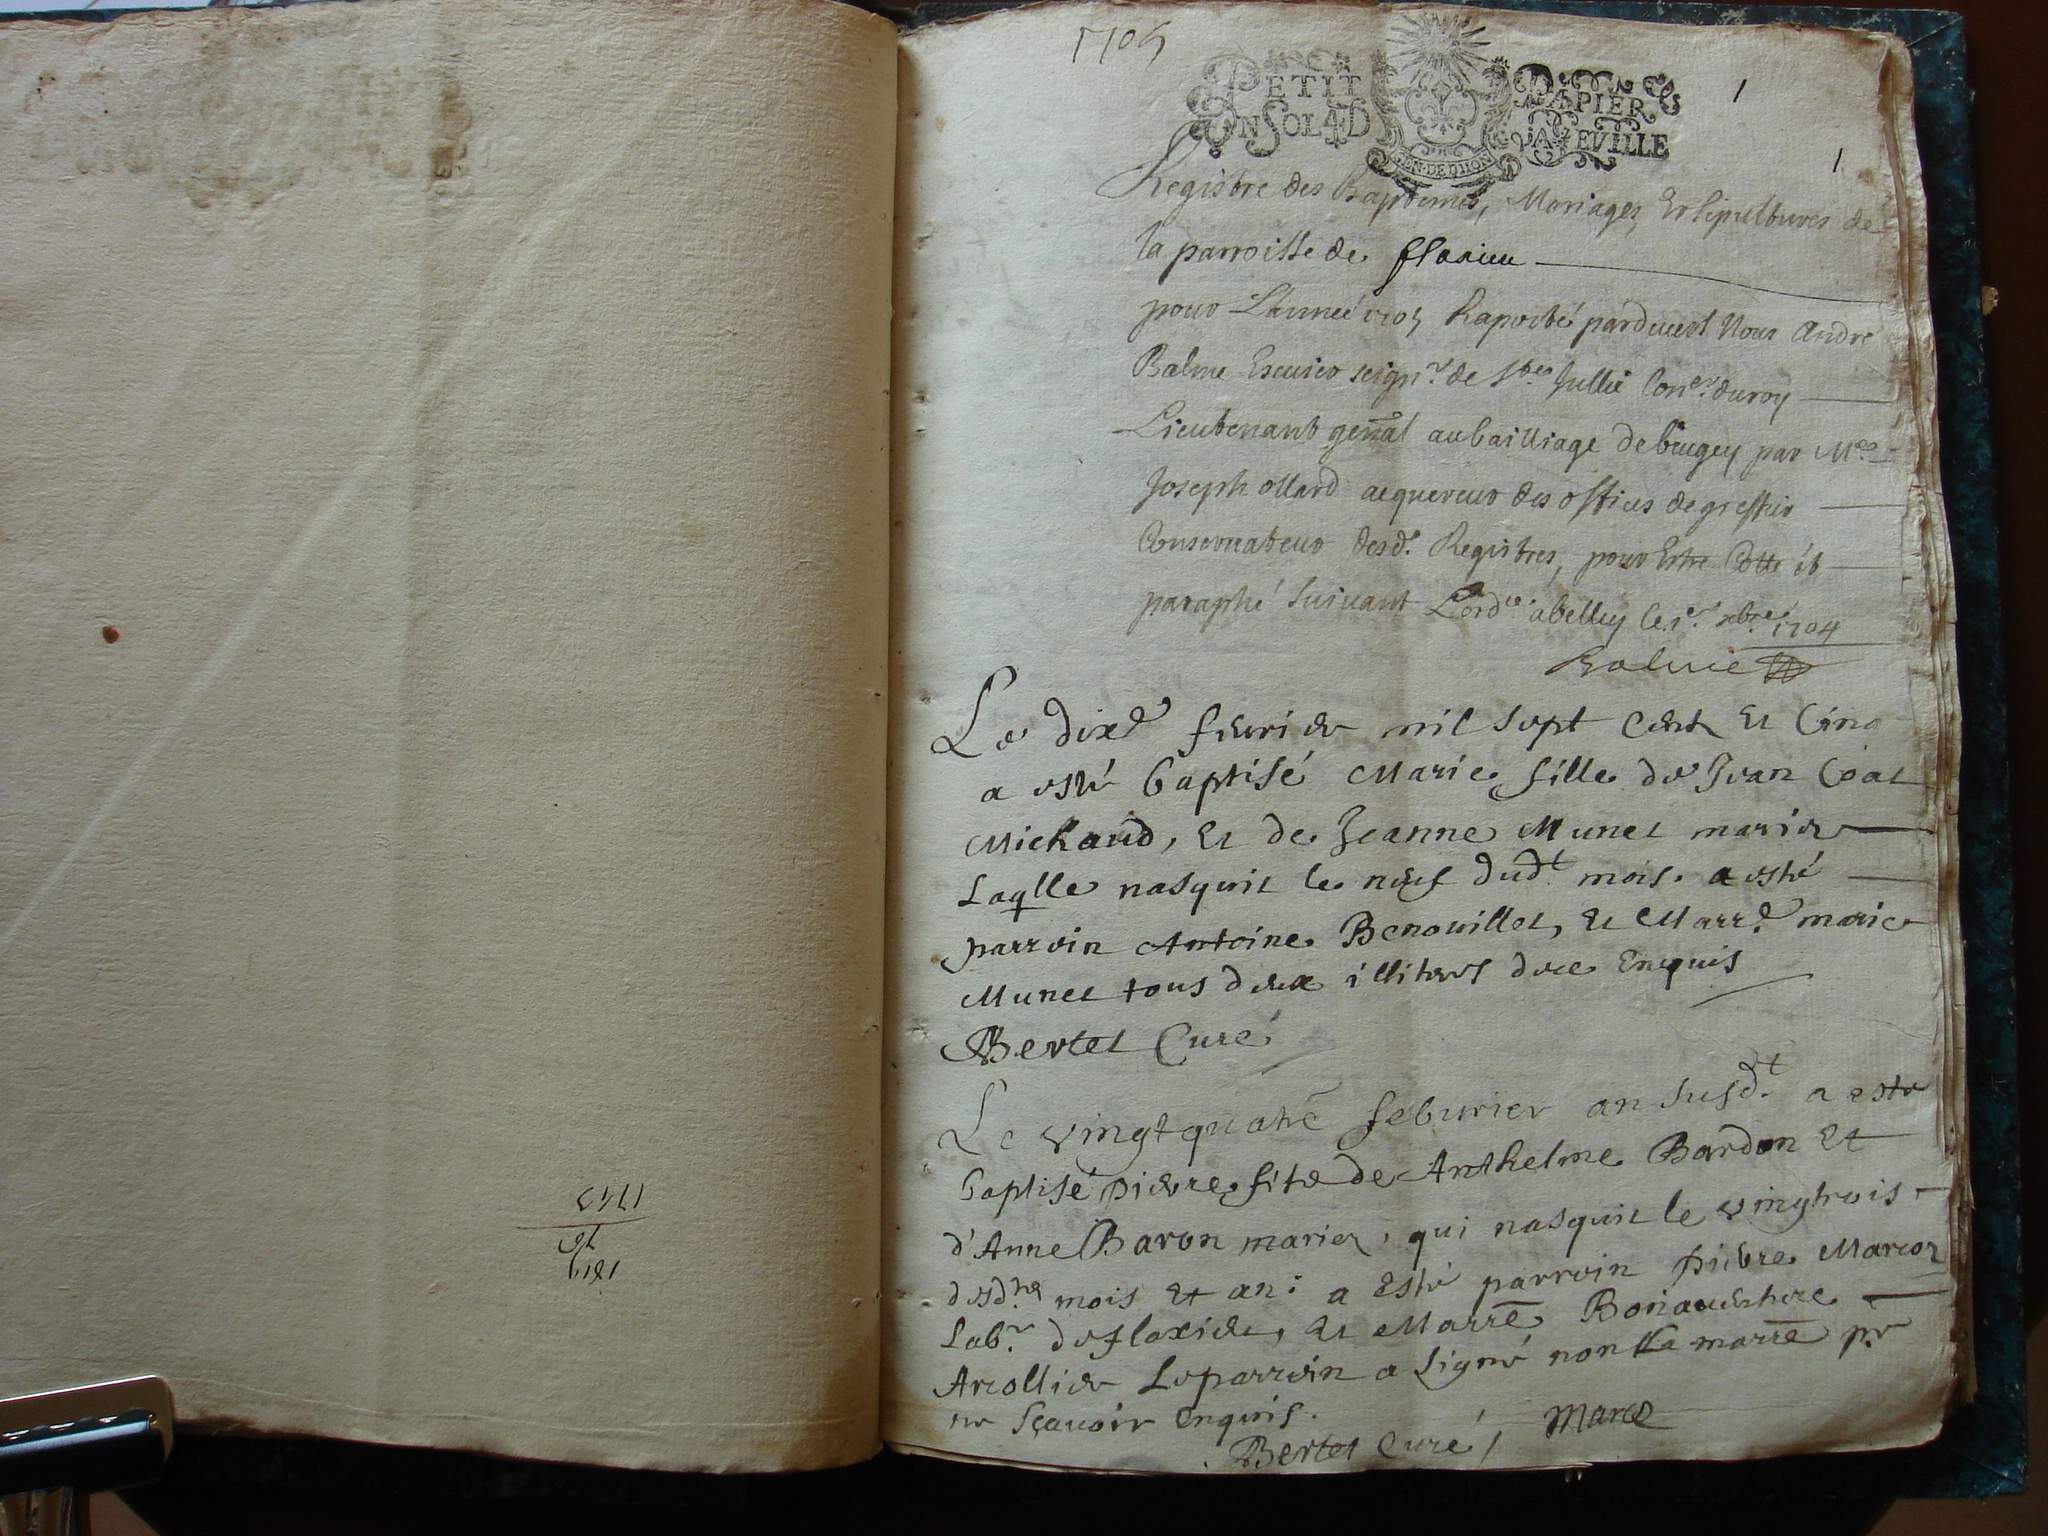 1743
76
1819
1705
PETIT PAPIER
UN SOL 4D LA FEUILLE
GEN DE DIION
1
1
Registre des Baptemes, Mariages, Et sepultures de
la parroisse de fflaxieu
pour L'année 1705 Raporté pardevant Nous André
Balme Escuier seignr. de Stes Jullie Coner. du roy
Lieutenant genãal au bailliage de bugey par Me.
Joseph ollard acquereur des offices de greffier
Conservateur desd. Registres, pour Estre Cotté et
paraphé suivant L'ordce. a belley le 1er. xbre. 1704
Balme
Le dixe fevrier mil sept Cent et Cinq
a esté baptisé Marie fille de Jean Coat
Michaud, et de Jeanne Munet mariez
Laqlle nasquit le neuf dudt mois. a esté
parrein Antoine Benouillet, et Marre marie
Munet tous deux illiteres de ce Enquis
Bertet Curé
Le vingtquatre feburier an susdt. a esté
baptisé pierre fils de Anthelme Bardon et
d'Anne Baron mariez, qui nasquit le vingtrois
desdits mois et an: a esté parrein pierre Marcoz
Labr. de flaxieu, et Marrē Bonaventure
Arcollier Le parrein a signé non La marrē pr
ne sçavoir enquis.
Bertet Curé, Marco